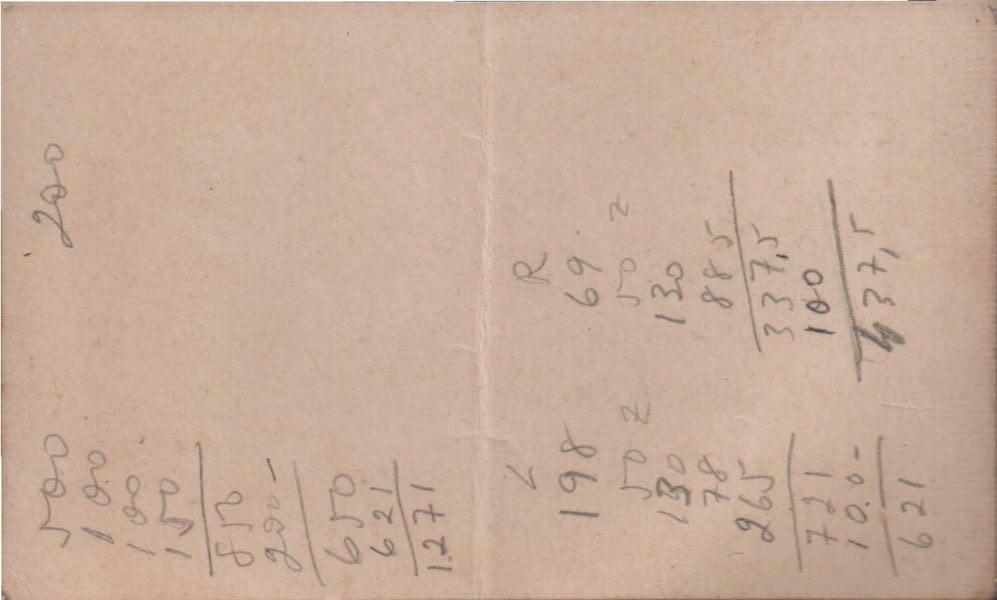 500
100
100
150
850
200 -
650
621
1.271
200
L
198
50 z
130
78
265
721
10.0 -
621
R
69
50 z
130
88 5
337,5
100
437,5